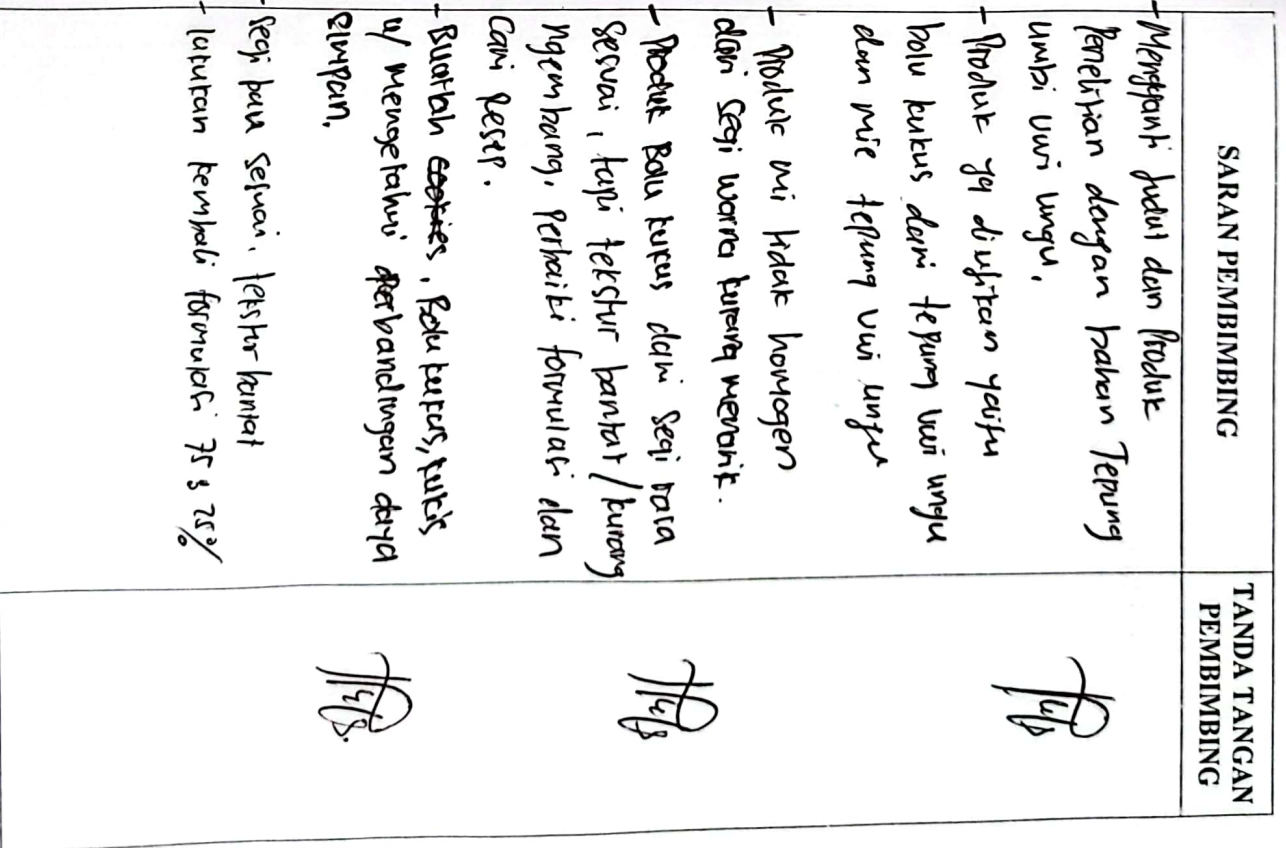 SARAN PEMBIMBING
TANDA TANGAN
PEMBIMBING
- Mengganti judul dan Produk
Penelitian dengan bahan Tepung
umbi uwi ungu.
- Produk yg diujikan yaitu
bolu kukus dari tepung uwi ungu
dan mie tepung uwi ungu
- Produk mi tidak homogen
dari segi warna kurang menarik.
- Produk Bolu kukus dari segi rasa
sesuai, tapi tekstur bantat/kurang
ngembang. Perbaiki formulasi dan
Cari Resep.
- Buatlah cookies, Bolu kukus, kukis
u/ mengetahui perbandingan daya
simpan.
- Segi bau sesuai, tekstur bantat
- lakukan kembali formulasi 75 & 25%